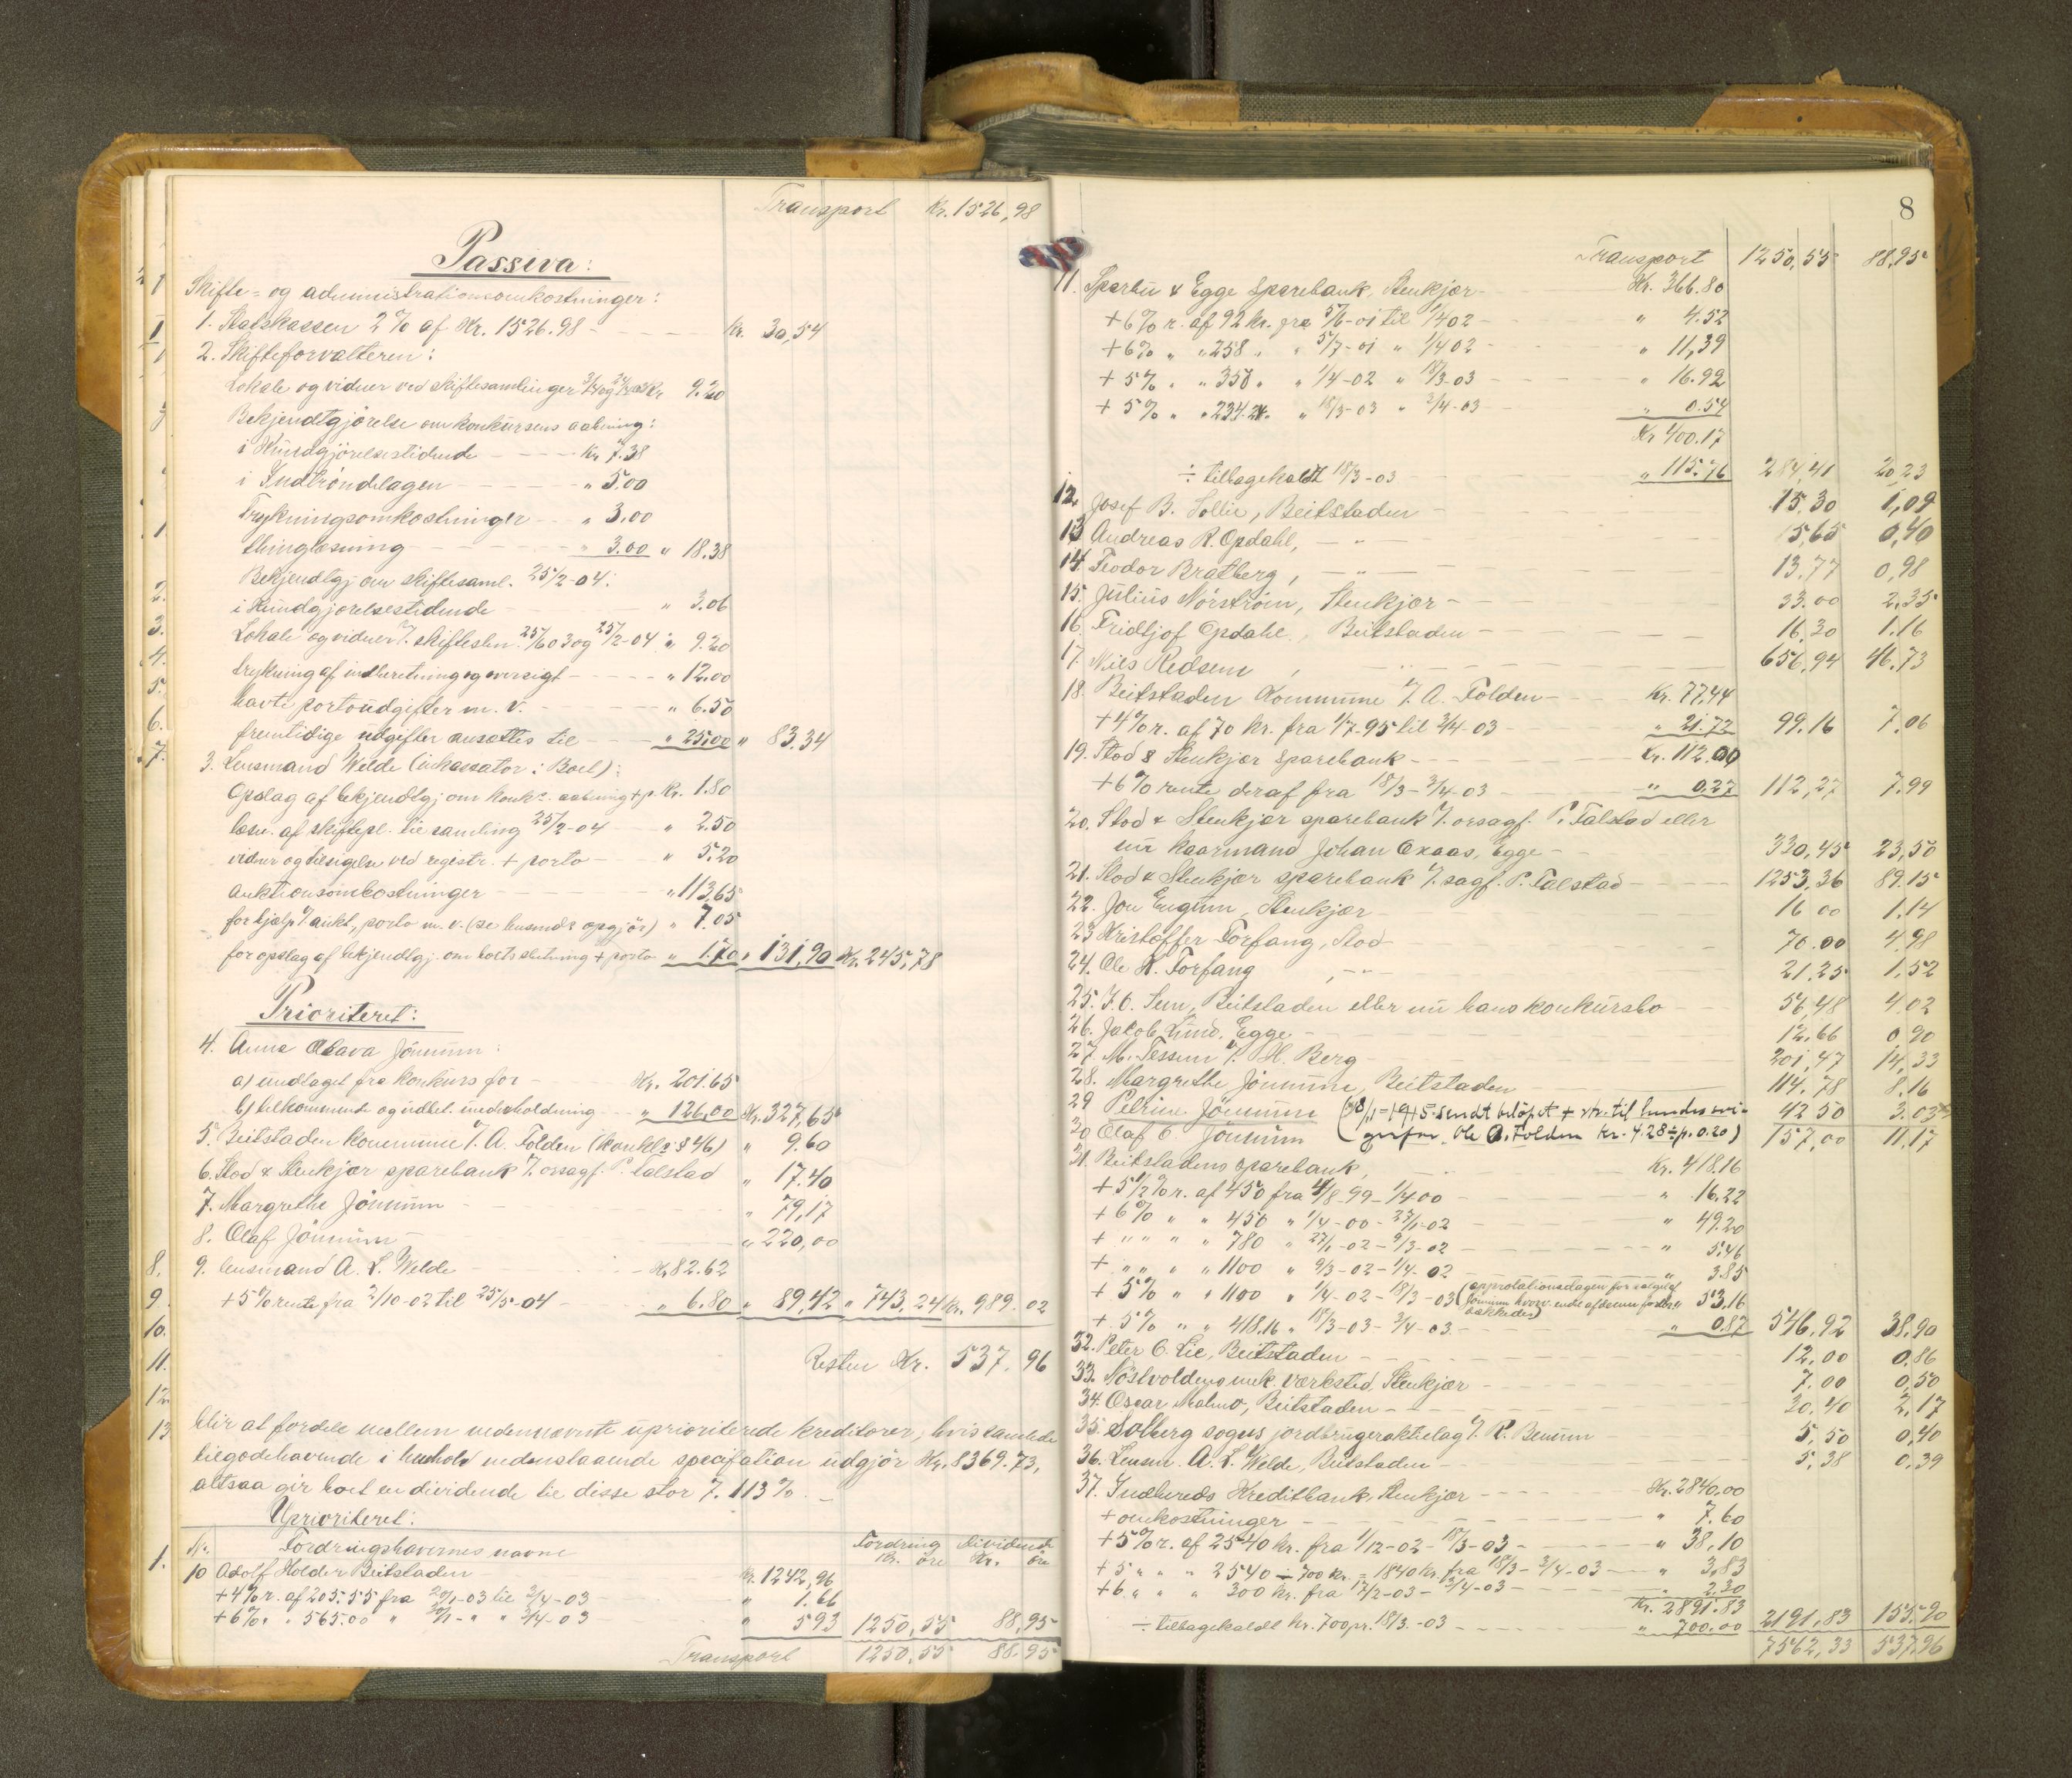 Transport Kr. 1526,98
Passiva:
Skifte- og administrationsomkostninger:
1. Statskassen 2% af Kr. 1526.98 - Kr. 30,54
2. Skifteforvalteren:
Lokale og vidner ved skiftesamlinger Kr. 9.20
Bekjendtgjörelse om konkursens aabning:
i Kundgjörelsestidende - Kr. 7.38
i Indtrøndelagen - " 5.00
Trykningsomkostninger - " 3.00
thinglæsning - " 3.00 " 18.38
Bekjendtgj om skiftesaml. 25/2-04:
i Kundgjørelsestidende " 3.06
Lokale og vidner 25/2-04 " 9.20
trykning af indberetning og oversigt - " 12.00
havte portoudgifter m. v. - " 6.50
fremtidige udgifter ansættes til - " 25.00 " 83.34
3. Lensmand Welde (inkassator i Boet):
Opslag af bekjendtgj om konk. aabning + p. Kr. 1.80
samling 25/2-04 " 2.50
vidner og tilsigelse ved registr. + porto - " 5.20
auktionsomkostninger - " 113,65
for hjælp v/ aukt., porto m. v. (se lensmds opgjör) " 7.05
for opslag af bekjendtgj. om boets slutning + porto " 1.70 " 131,90 Kr. 245,78
Prioriteret:
4. Anna Olava Jönnum:
a) undtaget fra konkurs for - Kr. 201.65
b) tilkommende og udbet. underholdning " 126,00 Kr. 327,65
5. Beitstaden kommune v/ A. Folden (Konkl. § 46) " 9.60
6. Stod & Stenkjær sparebank v/ orsagf. P. Talstad " 17.40
7. Margrethe Jönnum - " 79,17
8. Olaf Jönnum - " 220,00
9. Lensmand A. L. Welde - Kr. 82.62
+ 5% rente fra 2/10-02 til 25/5-04 - " 6.80 " 89,42 " 743,24 Kr. 989.02
Resten Kr. 537,96
blir at fordele mellem nedennævnte uprioriterede kreditorer, hvis samlede
tilgodehavende i henhold nedenstaaende specifation udgjör Kr. 8369.73,
altsaa gir boet en dividende til disse stor 7.113%.
Uprioriteret:
Nr. Fordringshavernes navne Fordring Kr. öre Dividende Kr. öre
10 Adolf Holder Beitstaden - Kr. 1242,96
+ 4% r. af 205.55 fra 20/1-03 til 3/4-03 - " 1.66
+ 6% " " 565.00 " 30/1 - " " 3/4-03 " 5.93 1250,55 88,95
Transport 1250,55 88,95
8
Transport 1250,55 88,95
11. Sparbu & Egge Sparebank, Stenkjær - Kr. 366.80
+ 6% r. af 92 kr. fra 5/6-01 til 1/4 02 - " 4.52
+ 6% " " 258 " " 5/7-01 " 1/4 02 - " 11,39
+ 5% " " 350 " " 1/4-02 " 18/3-03 - " 16.92
+ 5% " " 234.24 " " 18/3-03 " 3/4-03 - " 0.54
Kr 400.17
÷ tilbagekaldt 18/3-03 - " 115.76 284,41 20,23
12. Josef B. Sollie, Beitstaden - 15.30 1,09
13 Andreas R. Opdahl, - " - 5,65 0,40
14. Feodor Bratberg, - " - 13.77 0,98
15. Julius Nörström, Stenkjær - 33.00 2.35
16. Fridtjof Opdahl, Beitstaden - 16.30 1.16
17. Nils Redsem, - 656,94 46,73
18. Beitstaden Kommune v/ A. Folden - Kr. 77,44
+ 4% r. af 70 kr. fra 1/7-95 til 3/4-03 - " 21.72 99.16 7.06
19. Stod & Stenkjær sparebank - Kr. 112.00
+ 6% rente deraf fra 18/3 - 3/4-03 - " 0.27 112,27 7.99
20. Stod & Stenkjær sparebank v/ orsagf. P. Talstad eller
nu kaarmand Johan Oxaas, Egge - 330,45 23,50
21. Stod & Stenkjær sparebank v/ sagf. P. Talstad - 1253,36 89.15
22. Jon Engum, Stenkjær - 16 00 1.14
23 Kristoffer Forfang, Stod - 70.00 4.98
24. Ole K. Forfang, - " - 21,25 1,52
25. J. O. Sem, Beitstaden eller nu hans konkursbo - 56,48 4,02
26. Jakob Lund, Egge - 12,66 0,90
27. M. Tessem v/ H. Berg - 201,47 14,33
28. Margrethe Jönnum, Beitstaden - 114.78 8.16
29 Petrine Jönnum (28/1-1915 sendt belöpet + rtr. til 42 50 3.03
30 Olaf O. Jönnum Ole A. Folden kr. 4.28 ÷ p. 0.20) 157,00 11,17
31. Beitstadens sparebank, Kr. 418.16
+ 5 1/2% r. af 450 fra 4/8-99 - 1/4 00 - " 16.22
+ 6% " " 450 " 1/4-00 - 27/1-02 - " 49.20
+ " " " " 780 " 27/1-02 - 9/3-02 - " 5.46
+ " " " " 1100 " 9/3-02 - 1/4-02 - " 3.85
+ 5% " " 1100 " 1/4-02 - 18/3-03 (approbationsdagen for salget af " 53,16
+ 5% " " 418.16 " 18/3-03 - 3/4-03 - " 0.87 546,92 38.90
32. Peter O. Lie, Beitstaden - 12,00 0,86
33. Nöstvoldens mek. værksted, Stenkjær - 7.00 0,50
34. Oscar Malmo, Beitstaden - 30.40 2,17
35. Solberg sogns jordbrugeraktielag v/ R. Benum - 5,50 0,40
36. Lensm. A. L. Welde, Beitstaden - 5,38 0,39
37. Indherreds Kreditbank, Stenkjær - Kr. 2840.00
+ omkostninger - " 7.60
+ 5% r. af 2540 kr. fra 1/12-02 - 18/3-03 - " 38,10
+ 5 " " " 2540 ÷ 700 kr. = 1840 kr. fra 18/3 - 3/4-03 - " 3,83
+ 6 " " " 300 kr. fra 17/2-03 - 3/4-03 - " 2.30
Kr. 2891.83
÷ tilbagekaldt kr. 700 pr. 18/3-03 - " 700,00 2191,83 155,90
7562,33 537,96